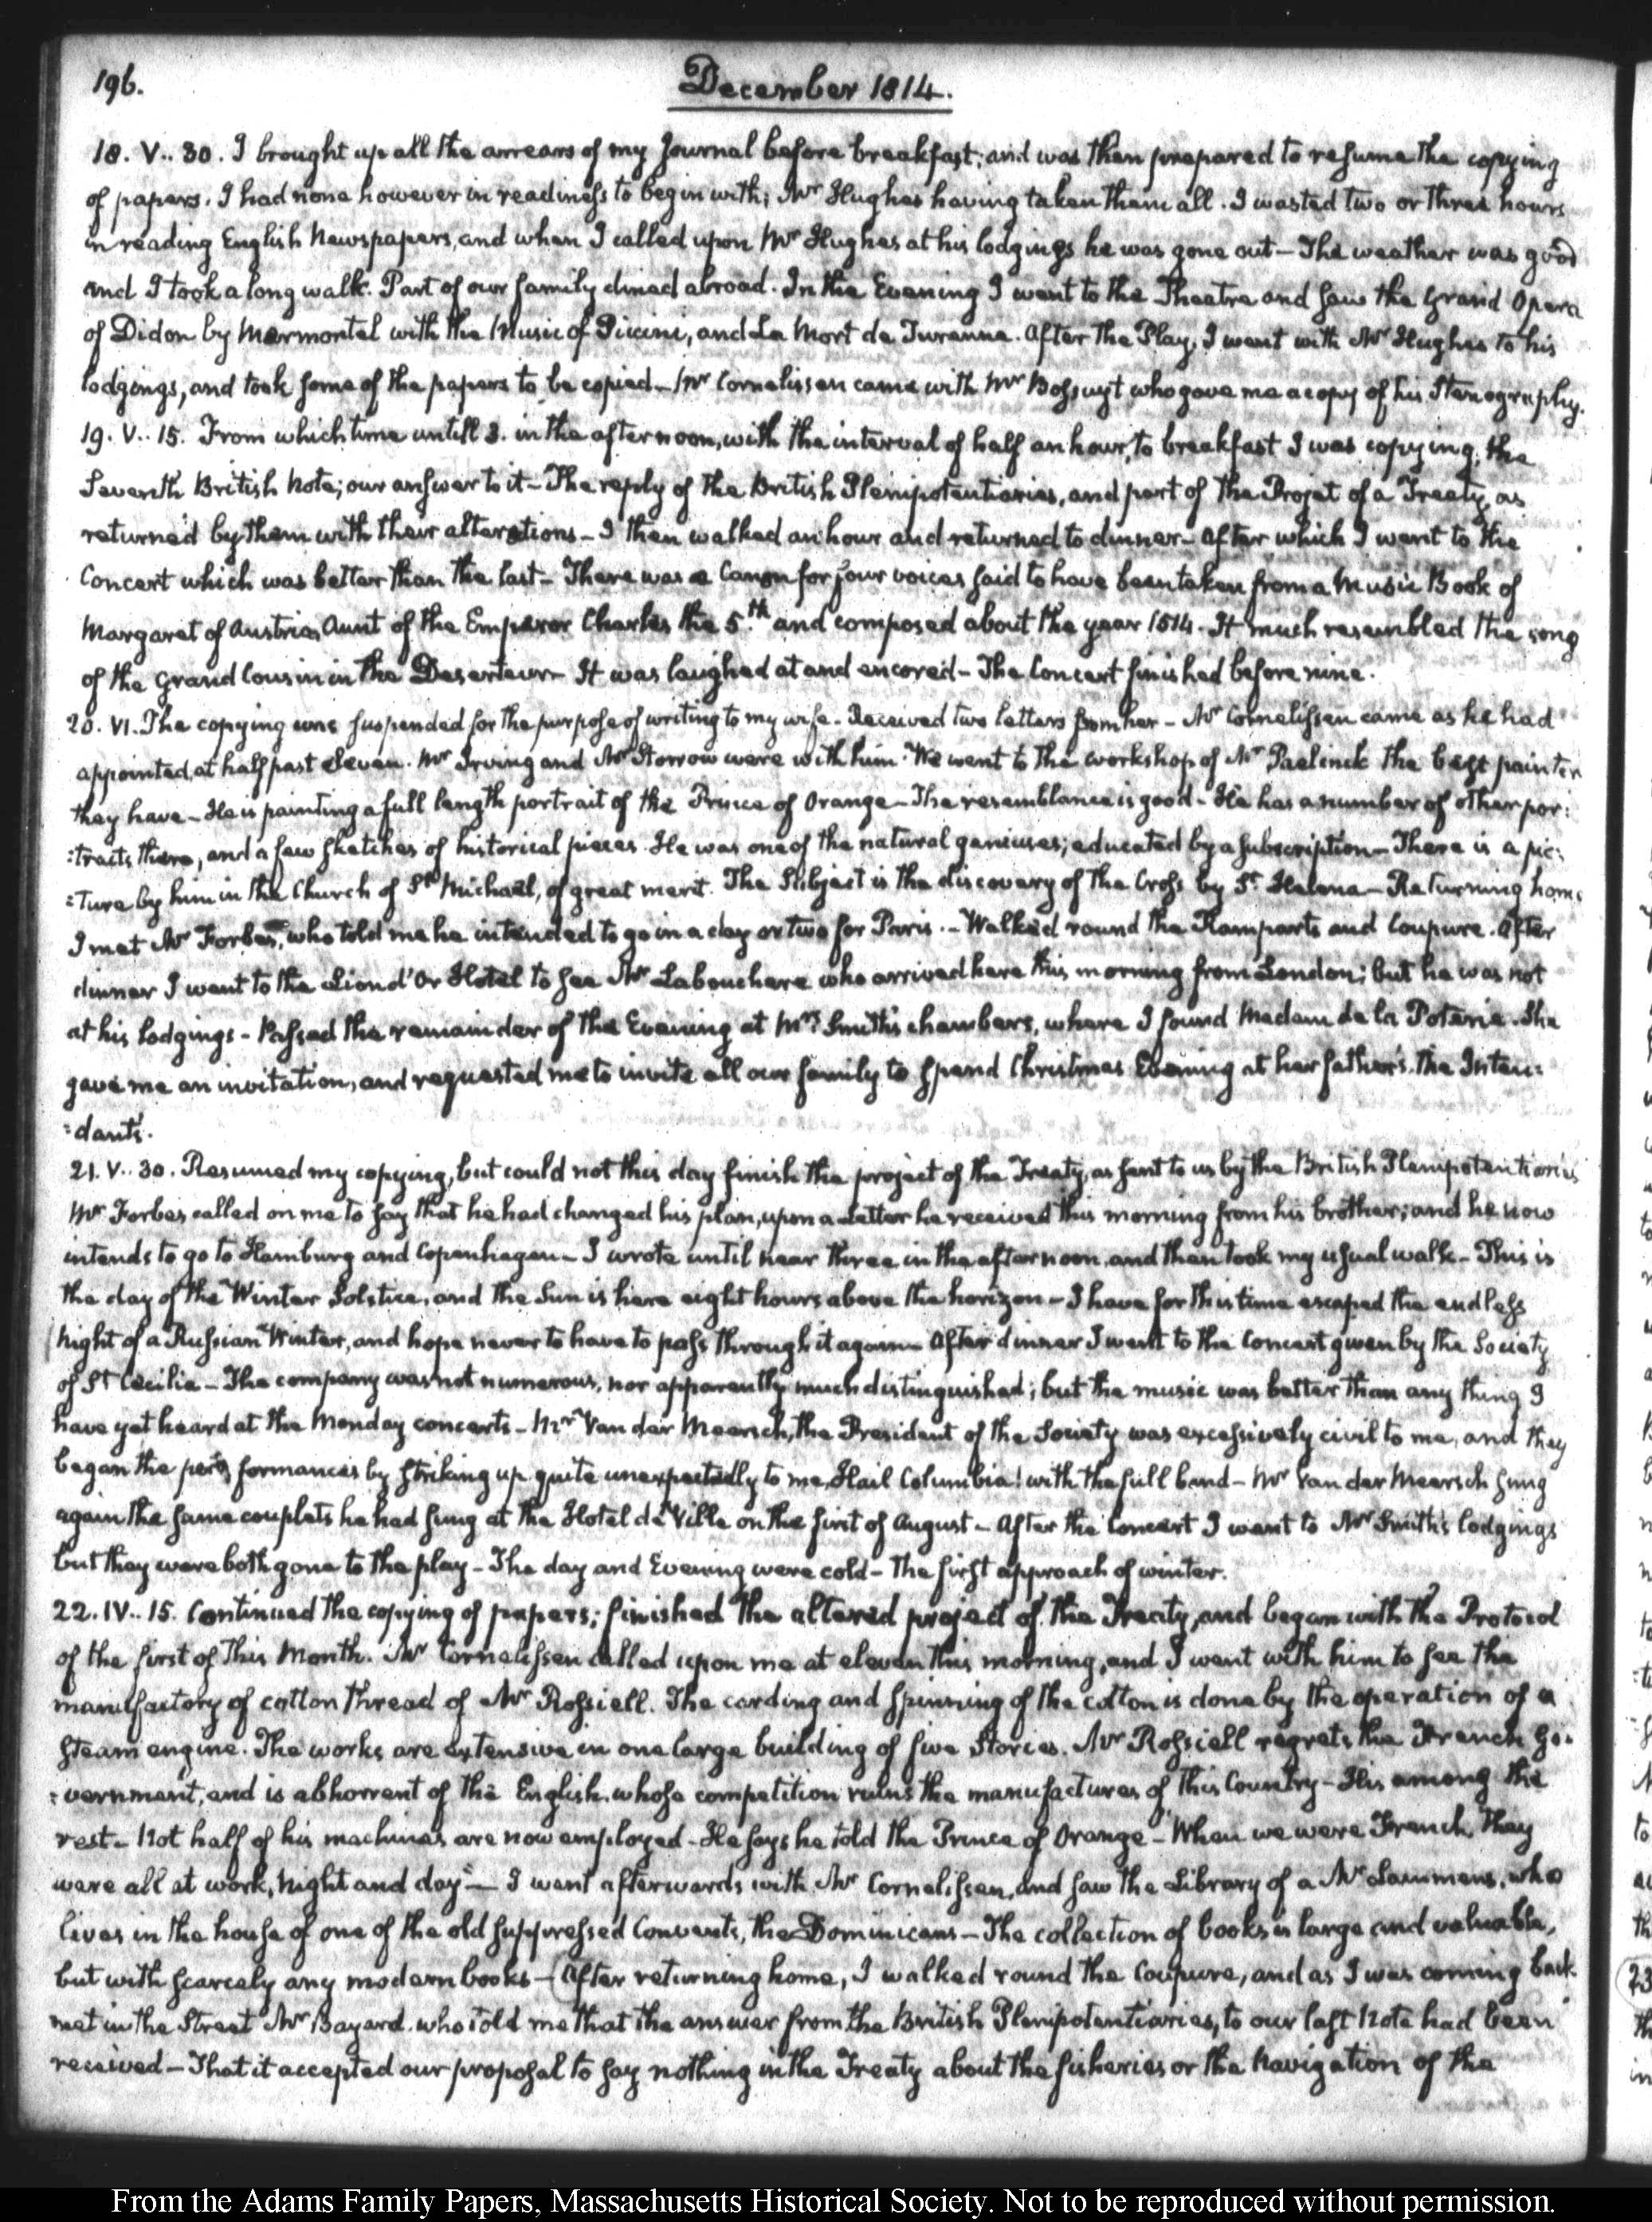 196.
December 1814.
18. V.. 30. I brought up all the arrears of my Journal before breakfast; and was then prepared to resume the copying
of papers. I had none however in readiness to begin with; Mr Hughes having taken them all. I wasted two or three hours
in reading English Newspapers, and when I called upon Mr Hughes at his lodgings he was gone out – The weather was good
and I took a long walk. Part of our family dined abroad. In the Evening I went to the Theatre and saw the Grand Opera
of Didon by Marmontel with the Music of Piccini, and La Mort de Turenne. After the Play, I went with Mr Hughes to his
lodgings, and took some of the papers to be copied – Mr Cornelissen came with Mr Bossuyt who gave me a copy of his Stenography.
19. V.. 15. From which time untill 3. in the afternoon, with the interval of half an hour, to breakfast I was copying, the
Seventh British Note; our answer to it – The reply of the British Plenipotentiaries, and part of the Projet of a Treaty, as
returned by them with their alterations – I then walked an hour and returned to dinner – After which I went to the
Concert which was better than the last – There was a Canon for four voices said to have been taken from a Music Book of
Margaret of Austria, Aunt of the Emperor Charles the 5.th and composed about the year 1514. It much resembled the song
of the Grand Cousin in the Deserteur – It was laughed at and encored – The Concert finished before nine.
20. VI. The copying was suspended for the purpose of writing to my wife. Received two letters from her – Mr Cornelissen came as he had
appointed, at half past eleven. Mr Irving and Mr Storrow were with him. We went to the workshop of Mr Paelinck the best painter
they have – He is painting a full length portrait of the Prince of Orange – The resemblance is good – He has a number of other por:
:traits there, and a few sketches of historical pieces. He was one of the natural geniuses; educated by a subscription – There is a pic:
:ture by him in the Church of St Michael, of great merit. The Subject is the discovery of the Cross by St Helena – Returning home
I met Mr Forbes, who told me he intended to go in a day or two for Paris. – Walked round the Ramparts and Coupure. After
dinner I went to the Lion d'Or Hotel to see Mr Labouchere who arrived here this morning from London; but he was not
at his lodgings – Passed the remainder of the Evening at Mrs Smith's chambers, where I found Madam de la Poterie. She
gave me an invitation, and requested me to invite all our family to spend Christmas Evening at her father's. the Inten:
:dant's.
21. V.. 30. Resumed my copying, but could not this day finish the project of the Treaty, as sent to us by the British Plenipotentiaries
Mr Forbes called on me to say that he had changed his plan, upon a Letter he received this morning from his brother; and he now
intends to go to Hamburg and Copenhagen – I wrote until near three in the afternoon, and then took my usual walk – This is
the day of the Winter Solstice, and the Sun is here eight hours above the horizon – I have for this time escaped the endless
Night of a Russian Winter, and hope never to have to pass through it again – After dinner I went to the Concert given by the Society
of St Cecilia – The company was not numerous, nor apparently much distinguished; but the music was better than any thing I
have yet heard at the Monday concerts – Mr Van der Meersch, the President of the Society was excessively civil to me, and they
began the performances by striking up quite unexpectedly to me, Hail Columbia! with the full band – Mr Van der Meersch sung
again the same couplets he had sung at the Hotel de Ville on the first of August – After the Concert I went to Mr Smith's lodgings
but they were both gone to the play – The day and Evening were cold – The first approach of winter.
22. IV.. 15. Continued the copying of papers; finished the altered project of the Treaty, and began with the Protocol
of the first of this Month. Mr Cornelissen called upon me at eleven this morning, and I went with him to see the
manufactory of cotton thread of Mr Rossiell. The carding and spinning of the cotton is done by the operation of a
steam engine. The works are extensive in one large building of five Stories. Mr Rossiell regrets the French Go:
:vernment, and is abhorrent of the English, whose competition ruins the manufactures of this Country – His among the
rest – Not half of his machines are now employed – He says he told the Prince of Orange – "When we were French, they
were all at work, night and day" – I went afterwards with Mr Cornelissen, and saw the Library of a Mr Lammens, who
lives in the house of one of the old suppressed Convents, the Dominicans – The collection of books is large and valuable,
but with scarcely any modern books – (After returning home, I walked round the Coupure, and as I was coming back
met in the Street Mr Bayard. who told me that the answer from the British Plenipotentiaries, to our last Note had been
received – That it accepted our proposal to say nothing in the Treaty about the fisheries or the Navigation of the
From the Adams Family Papers, Massachusetts Historical Society. Not to be reproduced without permission.